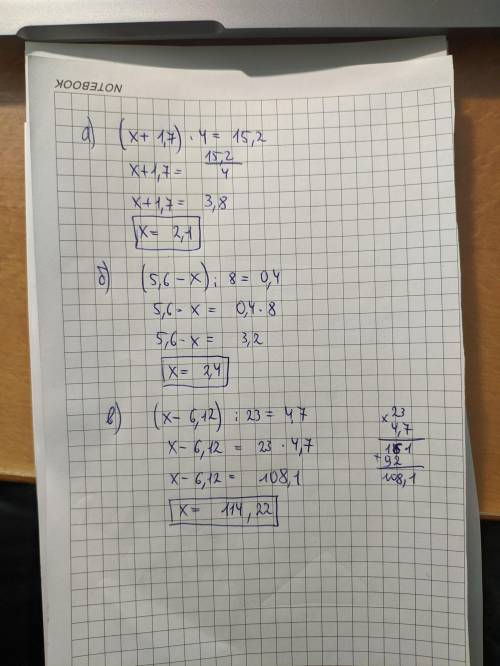 NOTEBOOK
а) (x + 1,7) · 4 = 15,2
x + 1,7 = 15,2 / 4
x + 1,7 = 3,8
x = 2,1
б) (5,6 - x) : 8 = 0,4
5,6 - x = 0,4 · 8
5,6 - x = 3,2
x = 2,4
в) (x - 6,12) : 23 = 4,7
x - 6,12 = 23 · 4,7
x - 6,12 = 108,1
x = 114,22
x 23
4,7
161
+ 92
108,1